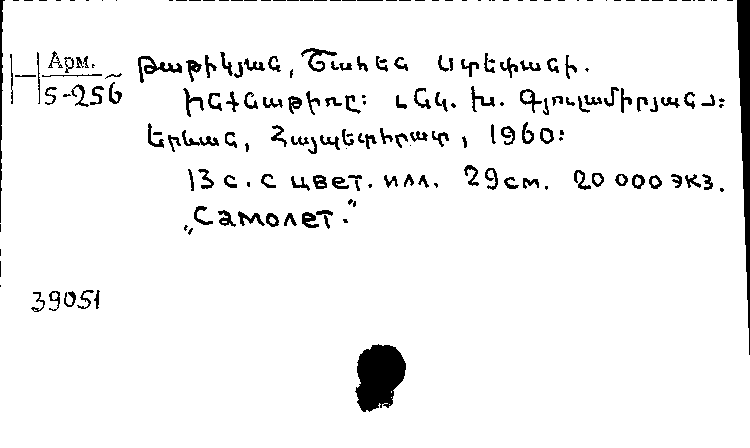 Арм.
5-256
Թաթիկյան, Շահեն Ստեփանի.
Ինքնաթիռը: ՆՆկ. Խ. Գյուլամիրյան:
Երևան, Հայպետհրատ, 1960:
13 с. с цвет. илл. 29 см. 20 000 экз.
„Самолет."
39051